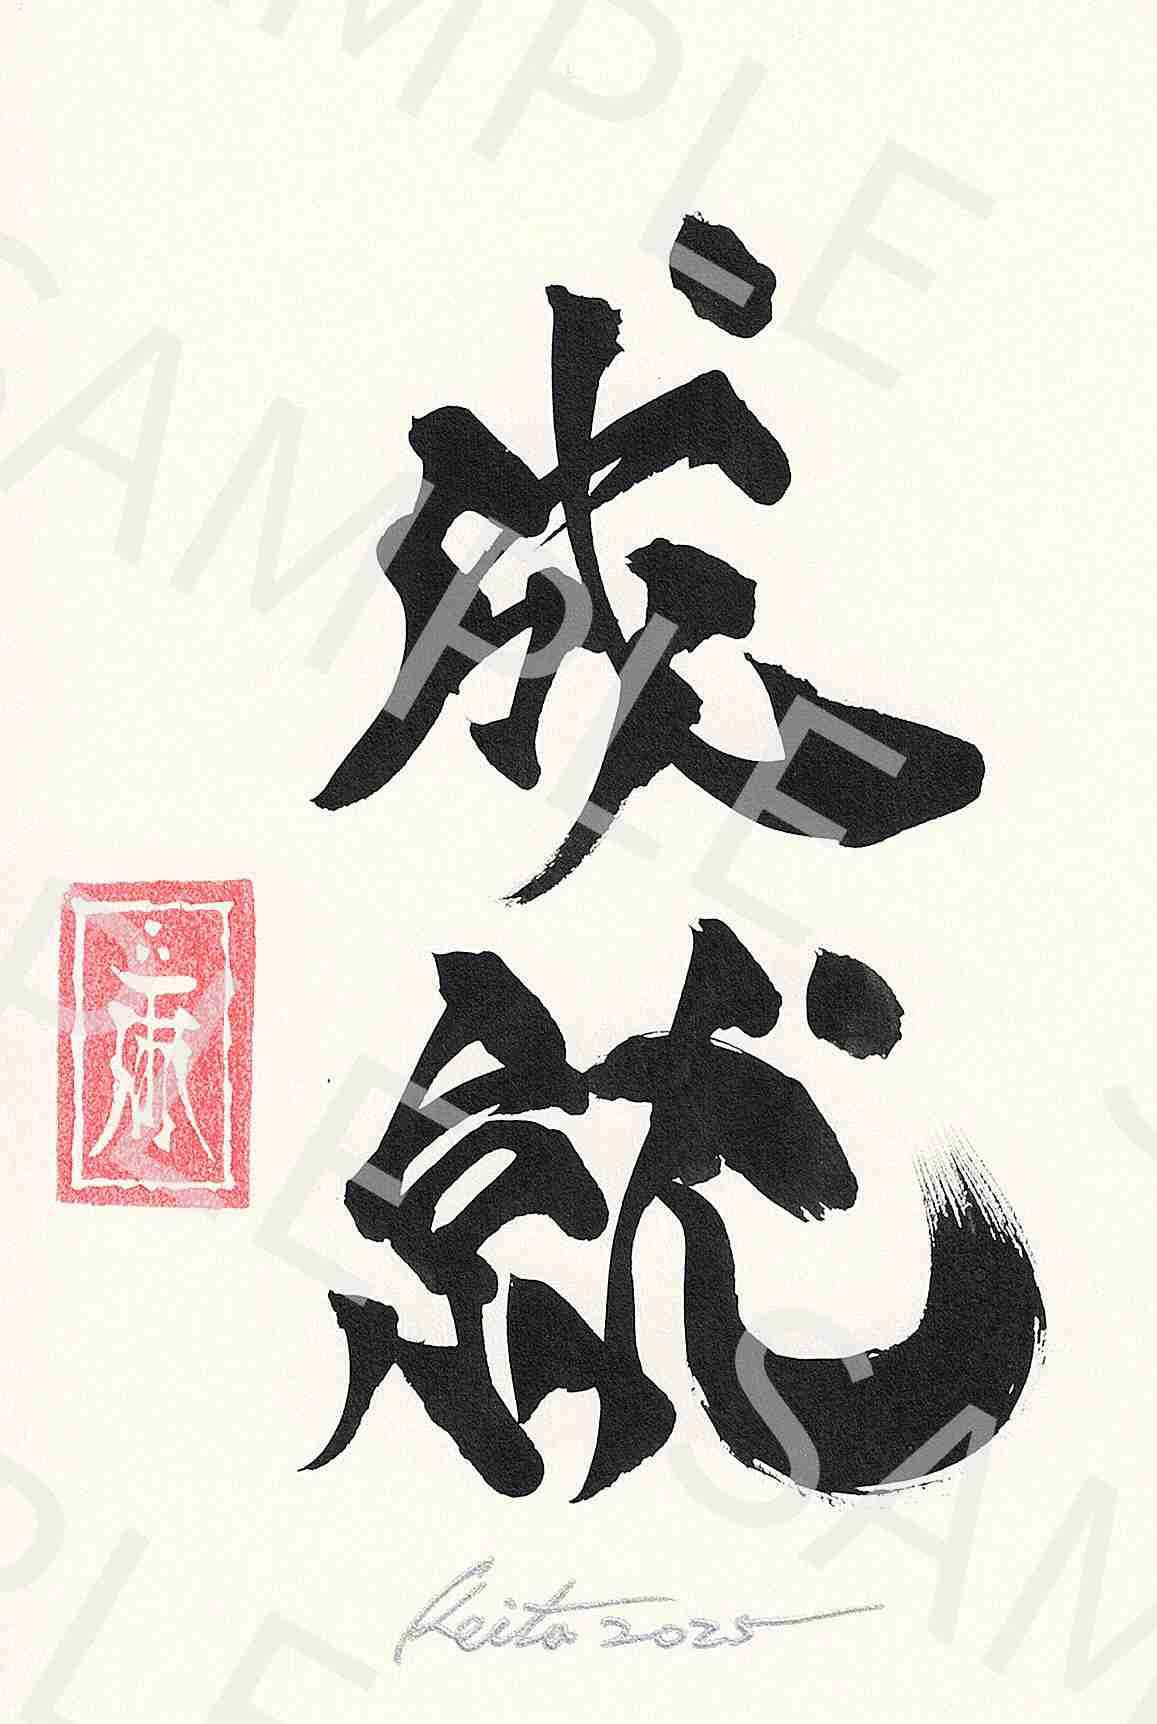 成就
Keita 2025
SAMPLE
SAMPLE
SAMPLE